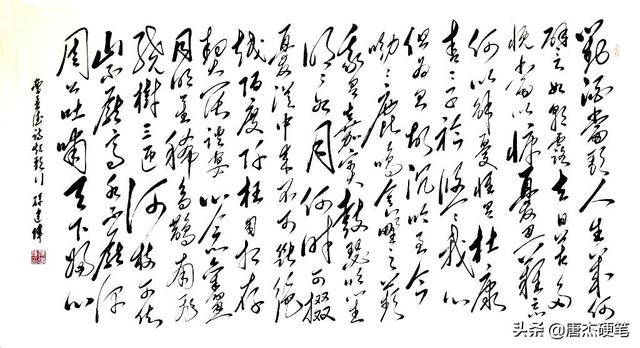 對酒當歌人生幾何
譬如朝露去日苦多
慨當以慷憂思難忘
何以解憂惟有杜康
青青子衿悠悠我心
但為君故沉吟至今
呦呦鹿鳴食野之苹
我有嘉賓鼓瑟吹笙
明明如月何時可掇
憂從中來不可斷絕
越陌度阡枉用相存
契闊談讌心念舊恩
月明星稀烏鵲南飛
繞樹三匝何枝可依
山不厭高水不厭深
周公吐哺天下歸心
曹孟德詩短歌行
头条 @唐杰硬笔